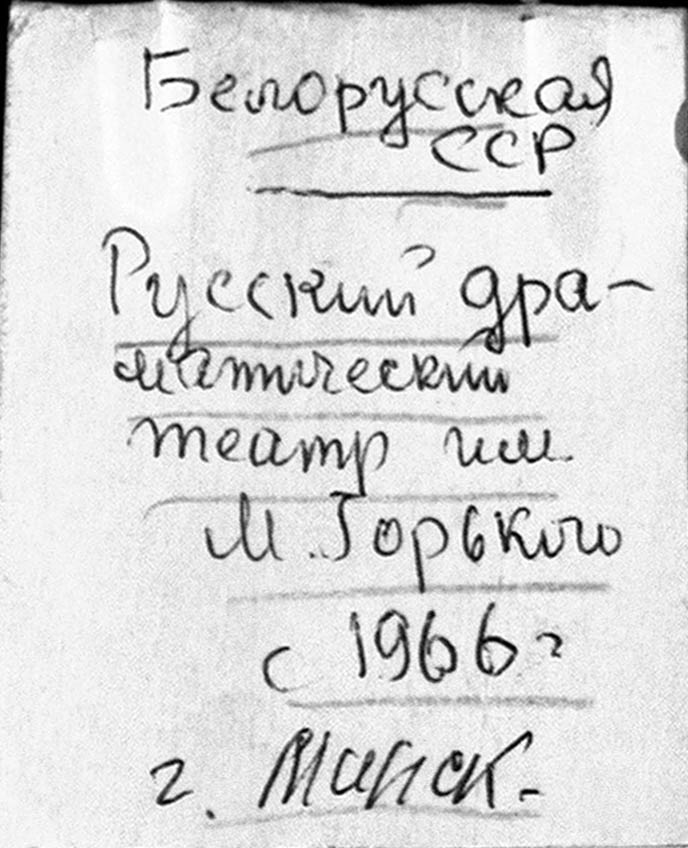 Белорусская
ССР
Русский дра-
матический
театр им.
М. Горького
с 1966 г
г. Минск.